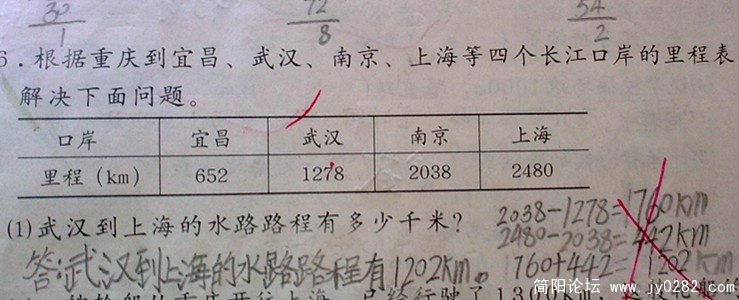 30
1
72
8
54
2
6．根据重庆到宜昌、武汉、南京、上海等四个长江口岸的里程表
解决下面问题。
口岸 宜昌 武汉 南京 上海
里程（km） 652 1278 2038 2480
(1)武汉到上海的水路路程有多少千米？
2038-1278=1760km
2480-2038=442km
1760+442=1202km
答：武汉到上海的水路路程有1202km。
已经行驶了1300
简阳论坛
www.jy0282.com